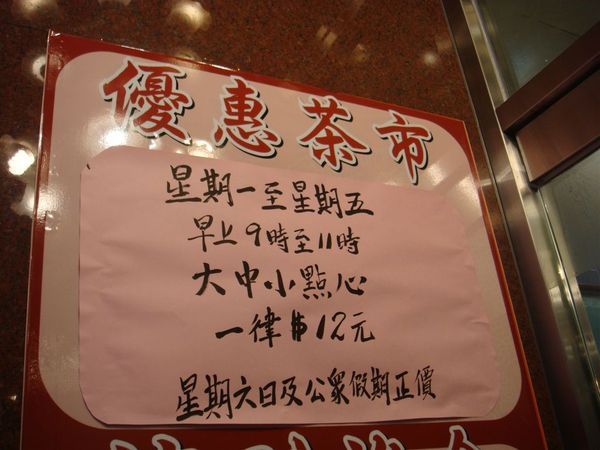 優惠茶市
星期一至星期五
早上9時至11時
大中小點心
一律$12元
星期六日及公眾假期正價